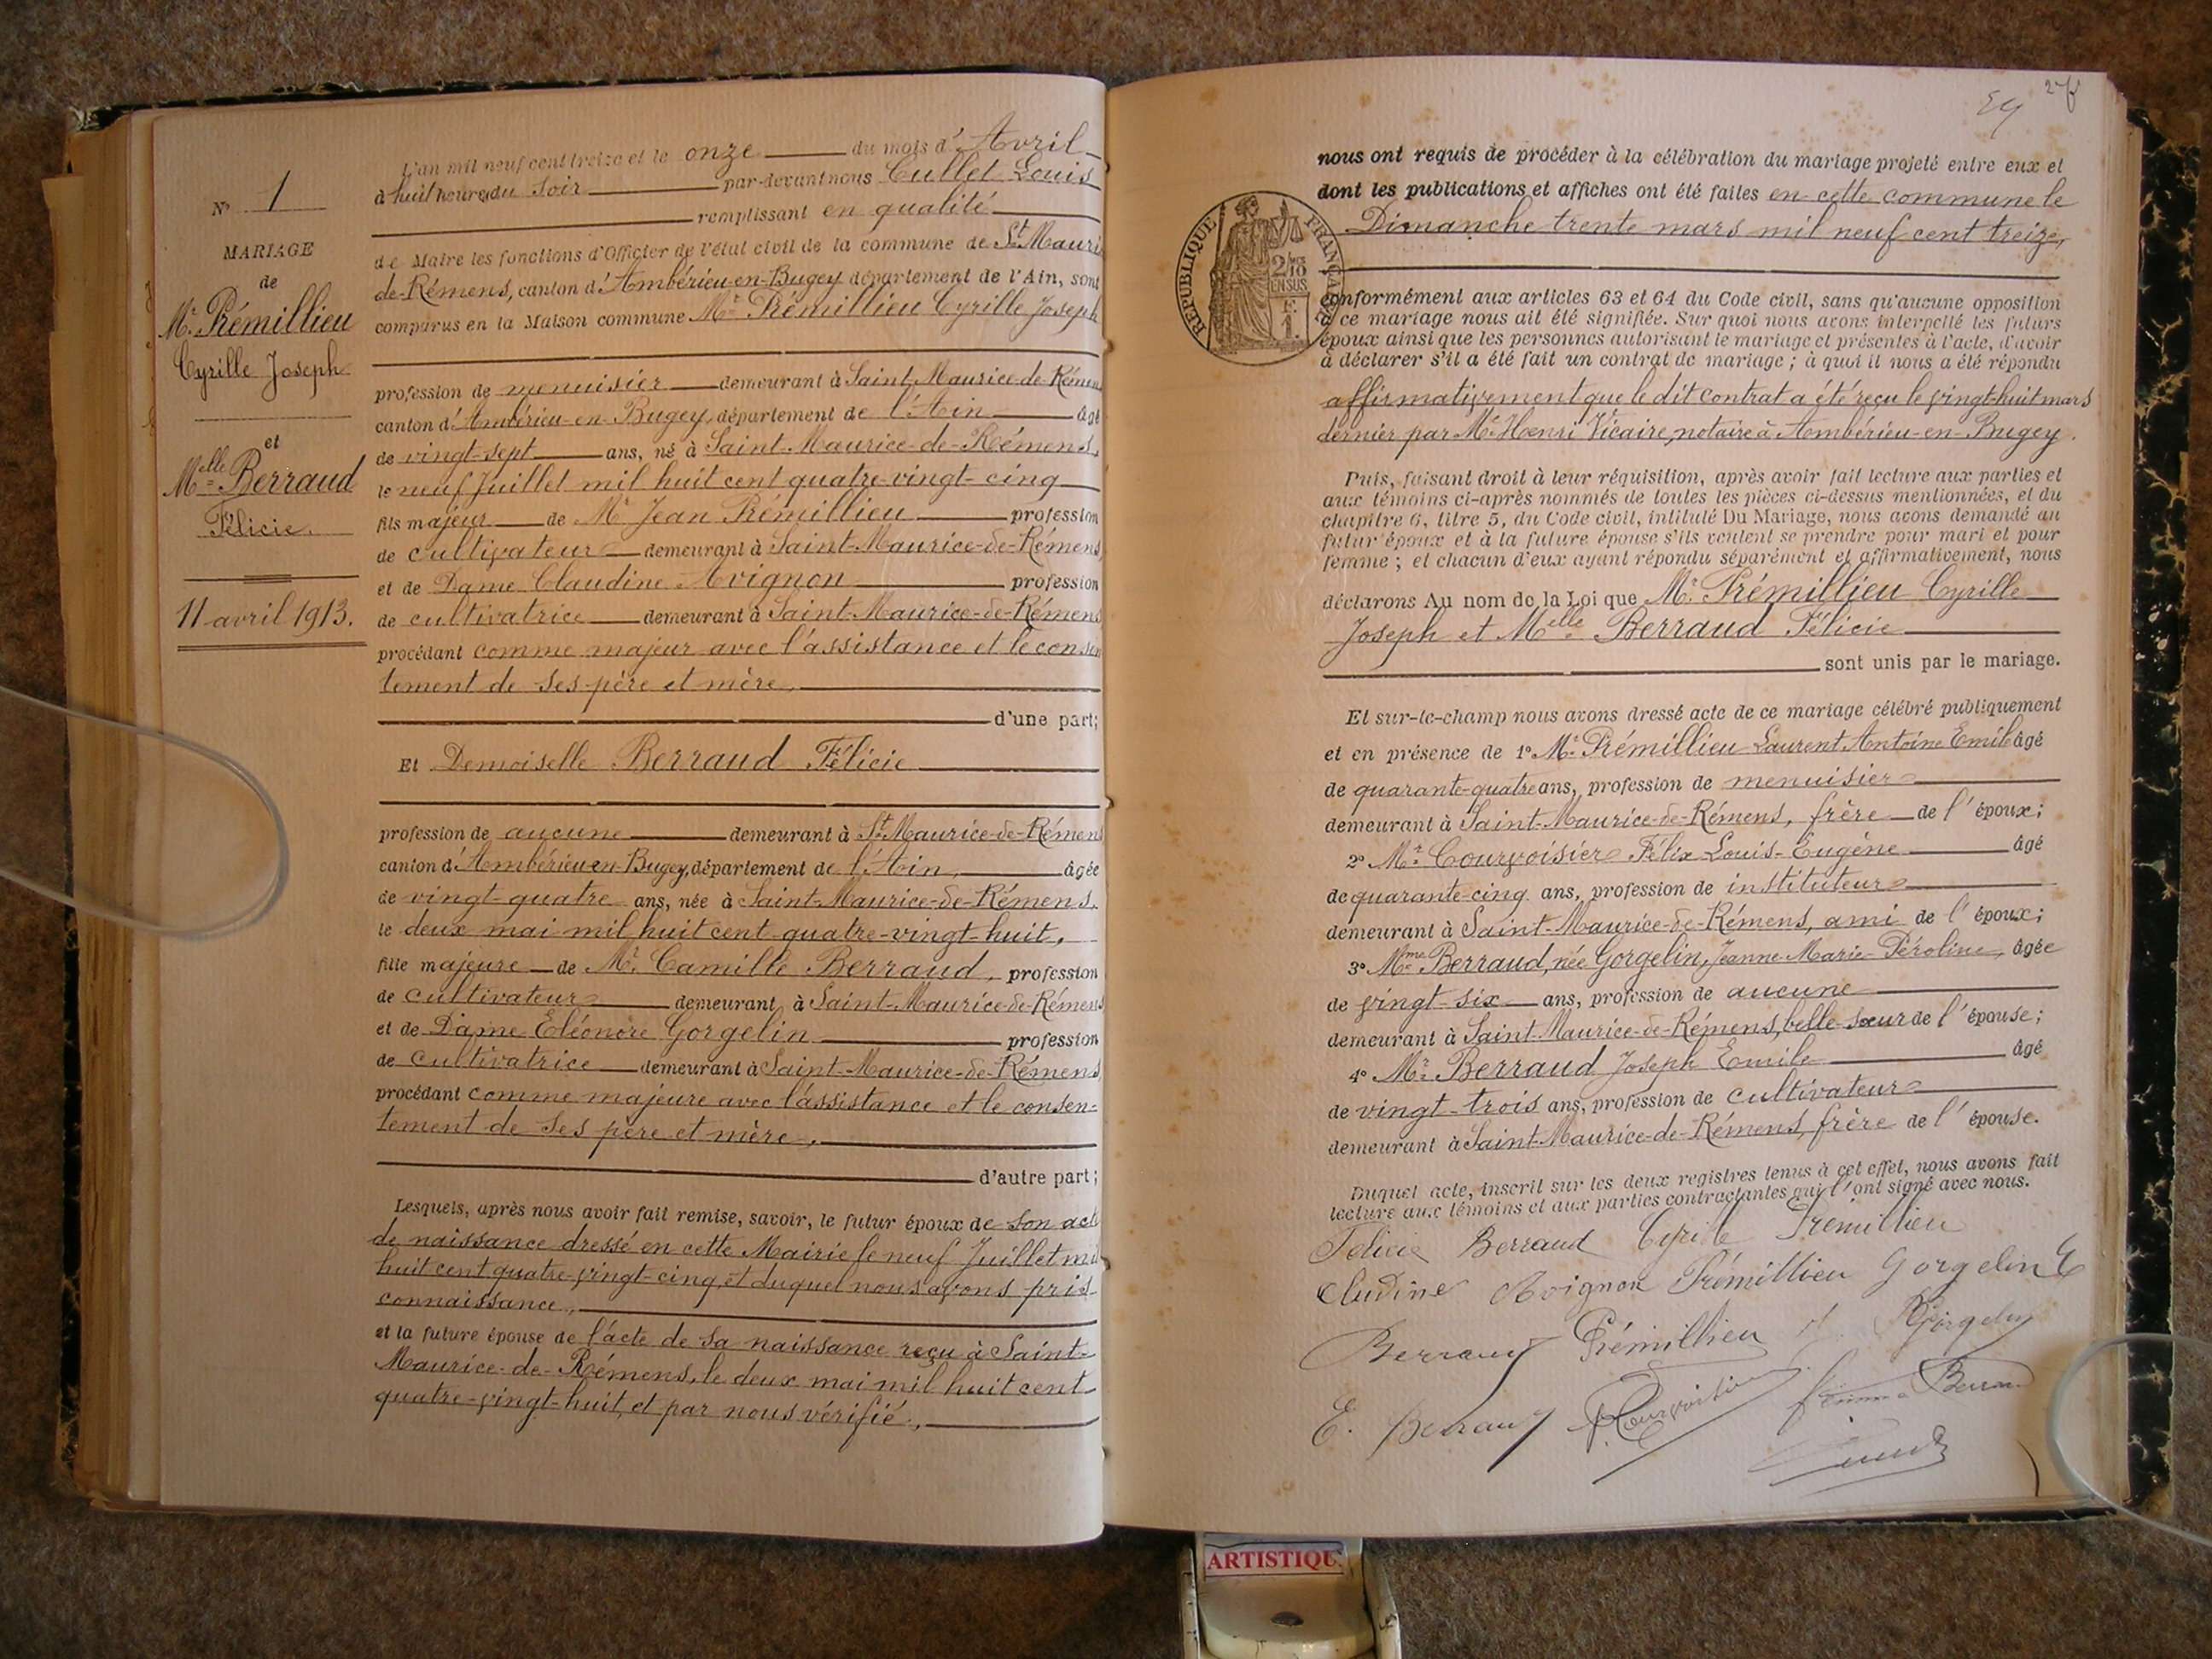 L'an mil neuf cent treize et le onze du mois d'Avril
à huit heures du soir par-devant nous Cullet Louis
remplissant en qualité
de Maire les fonctions d'Officier de l'état civil de la commune de St Mauri
de-Rémens, canton d'Ambérieu-en-Bugey département de l'Ain, sont
comparus en la Maison commune Mr Prémillieu Cyrille Joseph
profession de menuisier demeurant à Saint-Maurice-de-Rémens
canton d'Ambérieu-en-Bugey, département de l'Ain âgé
de vingt-sept ans, né à Saint-Maurice-de-Rémens,
le neuf Juillet mil huit cent quatre-vingt-cinq
fils majeur de Mr Jean Prémillieu profession
de cultivateur demeurant à Saint-Maurice-de-Rémens
et de Dame Claudine Avignon profession
de cultivatrice demeurant à Saint-Maurice-de-Rémens
procédant comme majeur avec l'assistance et le consen
tement de ses père et mère,
d'une part;
Et Demoiselle Berraud Félicie
profession de aucune demeurant à St Maurice-de-Rémens
canton d'Ambérieu-en-Bugey, département de l'Ain, âgée
de vingt-quatre ans, née à Saint-Maurice-de-Rémens,
le deux mai mil huit cent quatre-vingt-huit,
fille majeure de Mr Camille Berraud, profession
de cultivateur demeurant, à Saint-Maurice-de-Rémens
et de Dame Eléonore Gorgelin profession
de cultivatrice demeurant à Saint-Maurice-de-Rémens
procédant comme majeure avec l'assistance et le consen-
tement de ses père et mère,
d'autre part;
Lesquels, après nous avoir fait remise, savoir, le futur époux de son acte
de naissance dressé en cette Mairie le neuf Juillet mil
huit cent quatre-vingt-cinq, et duquel nous avons pris
connaissance,
et la future épouse de l'acte de sa naissance reçu à Saint-
Maurice-de-Rémens, le deux mai mil huit cent
quatre-vingt-huit, et par nous vérifié.,
No 1
MARIAGE
de
Mr Prémillieu
Cyrille Joseph
et
Melle Berraud
Félicie.
11 avril 1913.
nous ont requis de procéder à la célébration du mariage projeté entre eux et
dont les publications et affiches ont été faites en cette commune le
Dimanche trente mars mil neuf cent treize,
RÉPUBLIQUE FRANÇAISE
2/10
EN SUS
conformément aux articles 63 et 64 du Code civil, sans qu'aucune opposition
à ce mariage nous ait été signifiée. Sur quoi nous avons interpellé les futurs
époux ainsi que les personnes autorisant le mariage et présentes à l'acte, d'avoir
à déclarer s'il a été fait un contrat de mariage ; à quoi il nous a été répondu
affirmativement que le dit contrat a été reçu le vingt-huit mars
dernier par Me Henri Vicaire, notaire à Ambérieu-en-Bugey.
Puis, faisant droit à leur réquisition, après avoir fait lecture aux parties et
aux témoins ci-après nommés de toutes les pièces ci-dessus mentionnées, et du
chapitre 6, titre 5, du Code civil, intitulé Du Mariage, nous avons demandé au
futur époux et à la future épouse s'ils veulent se prendre pour mari et pour
femme ; et chacun d'eux ayant répondu séparément et affirmativement, nous
déclarons Au nom de la Loi que Mr Prémillieu Cyrille
Joseph et Melle Berraud Félicie
sont unis par le mariage.
Et sur-le-champ nous avons dressé acte de ce mariage célébré publiquement
et en présence de 1o Mr Prémillieu Laurent Antoine Emile âgé
de quarante-quatre ans, profession de menuisier
demeurant à Saint-Maurice-de-Rémens, frère de l'époux;
2o Mr Courvoisier Félix Louis-Eugène âgé
de quarante-cinq ans, profession de instituteur
demeurant à Saint-Maurice-de-Rémens, ami de l'époux;
3o Mme Berraud, née Gorgelin, Jeanne Marie-Péroline, âgée
de vingt-six ans, profession de aucune
demeurant à Saint-Maurice-de-Rémens, belle-sœur de l'épouse;
4o Mr Berraud Joseph Emile âgé
de vingt-trois ans, profession de cultivateur
demeurant à Saint-Maurice-de-Rémens, frère de l'épouse.
Duquel acte, inscrit sur les deux registres tenus à cet effet, nous avons fait
lecture aux témoins et aux parties contractantes qui l'ont signé avec nous.
Felicie Berraud Cyrille Prémillieu
Cludine Avignon Prémillieu Gorgelin E
Berraud Prémillieu Gorgelin
E. Berraud Courvoisier femme Berraud
ARTISTIQUE